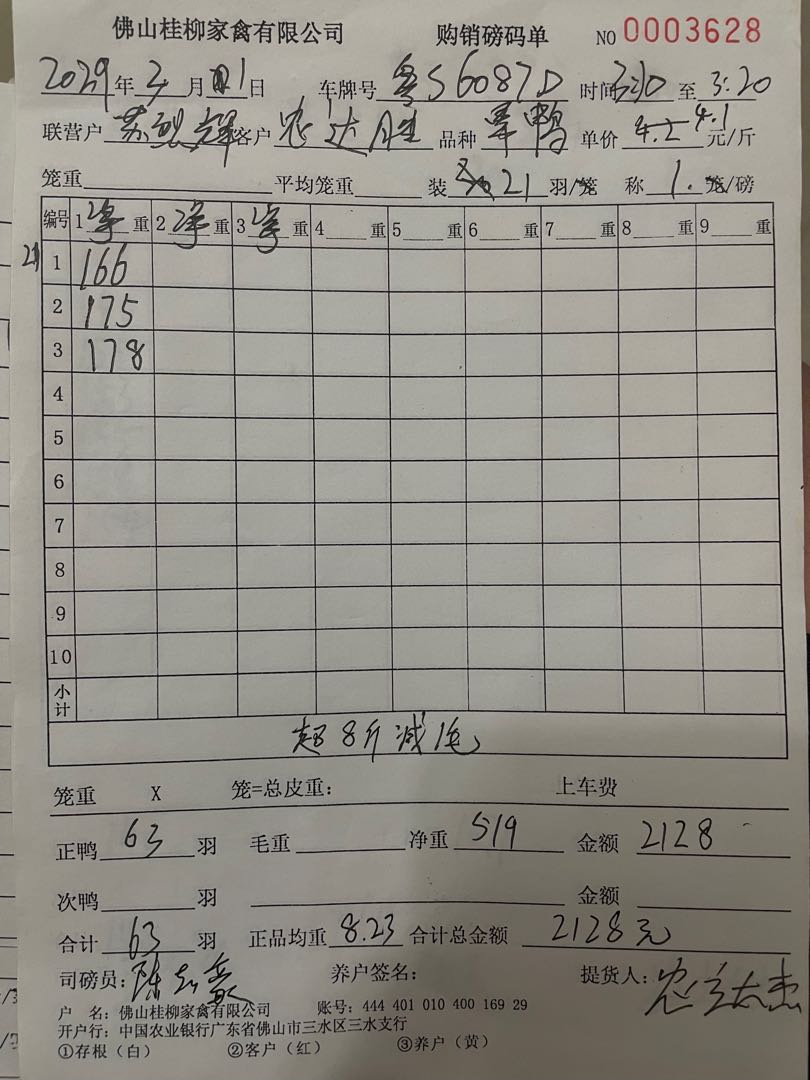 佛山桂柳家禽有限公司 购销磅码单 NO 0003628
2029年3月1日 车牌号 粤S6087D 时间 3:10 至 3:20
联营户 苏 辉 客户 农达胜 品种 鸭 单价 4.2 4.1 元/斤
笼重 平均笼重 装 21 羽/笼 称 1. 笼/磅
编号 1 净 重 2 净 重 3 净 重 4 重 5 重 6 重 7 重 8 重 9 重
21 1 166
2 175
3 178
4
5
6
7
8
9
10
小计
超8斤减1毛
笼重 X 笼=总皮重： 上车费
正鸭 63 羽 毛重 净重 519 金额 2128
次鸭 羽 金额
合计 63 羽 正品均重 8.23 合计总金额 2128元
司磅员：陈 养户签名： 提货人：农
户 名：佛山桂柳家禽有限公司 账号：444 401 010 400 169 29
开户行：中国农业银行广东省佛山市三水区三水支行
①存根（白） ②客户（红） ③养户（黄）